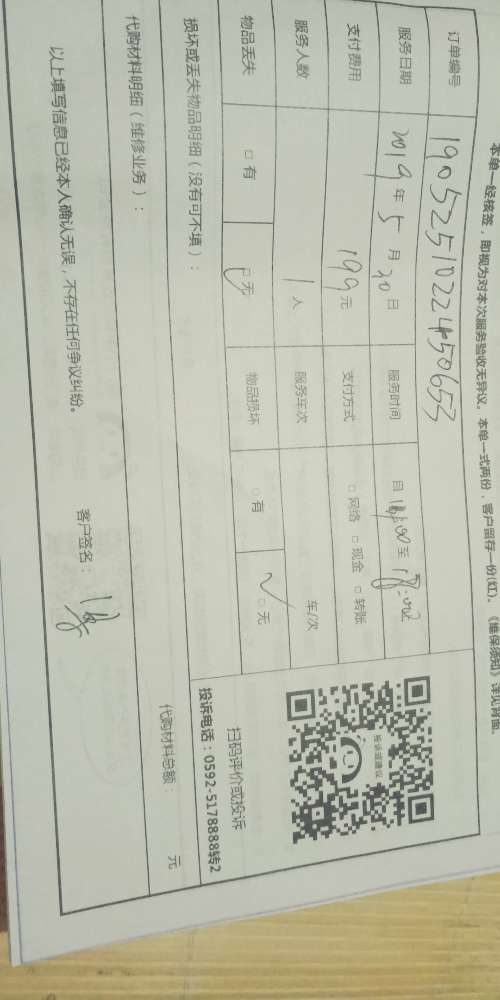 本单一经核签，即视为对本次服务验收无异议。本单一式两份，客户留存一份(红)。《维保须知》详见背面。
订单编号 190525102245065​3
服务日期 2019年5月30日 服务时间 自 至
支付费用 199元 支付方式 □网络 □现金 □转账
服务人数 1人 服务车次 车/次
物品丢失 □有 □无 物品损坏 □有 □无
给该项建议
扫码评价或投诉
投诉电话：0592-5178888转2
损坏或丢失物品明细（没有可不填）：
代购材料明细（维修业务）： 代购材料总额： 元
以上填写信息已经本人确认无误，不存在任何争议纠纷。 客户签名：